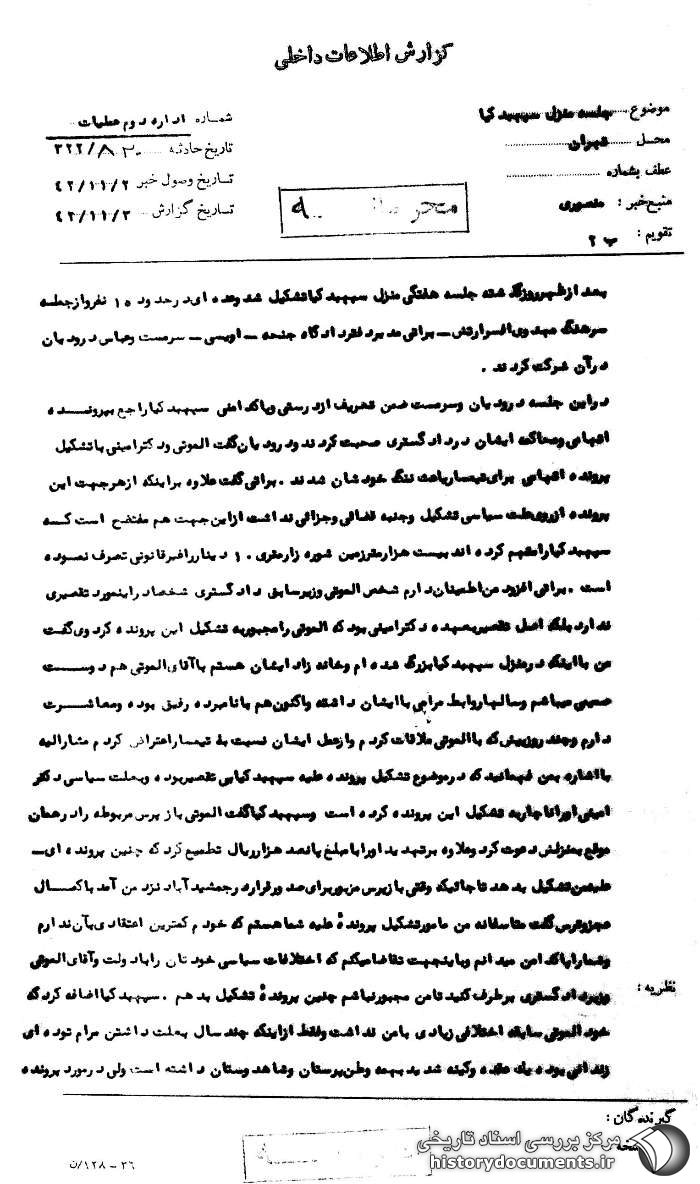 گزارش اطلاعات داخلی
موضوع جلسه منزل سپهبد کیا
شماره اداره دوم عملیات
محل تهران
تاریخ حادثه
عطف بشماره
تاریخ وصول خبر ۴۲/۱۱/۲
منبع خبر : منصوری
تاریخ گزارش ۴۲/۱۱/۳
محرمانه
تقویم : ب ۲
بعد از ظهر روز گذشته جلسه هفتگی منزل سپهبد کیا تشکیل شد و عده ای در حدود ۱۵ نفر و از جمله
سرهنگ مهدوی افسر ارتش ـ براتی مدیر دفتر دادگاه جنحه ـ اویسی ـ سرمست و عباس درودیان
در آن شرکت کردند .
در این جلسه درودیان و سرمست ضمن تعریف از درستی و پاکدامنی سپهبد کیا راجع بپرونده
اتهامی و محاکمه ایشان در دادگستری صحبت کردند و درودیان گفت الموتی و دکتر امینی با تشکیل
پرونده اتهامی برای تیمسار باعث ننگ خودشان شدند . براتی گفت علاوه بر اینکه از هر جهت این
پرونده از روی علت سیاسی تشکیل و جنبه قضائی و جزائی نداشت از این جهت هم مفتضح است که
سپهبد کیا را متهم کرده اند بیست هزار متر زمین شوره زار متری ۱۰ دینار را غیر قانونی تصرف نموده
است . براتی افزود من اطمینان دارم شخص الموتی وزیر سابق دادگستری شخصا در اینمورد تقصیری
ندارد بلکه اصل تقصیر بعهده دکتر امینی بود که الموتی را مجبور به تشکیل این پرونده کرد وی گفت
من با اینکه در منزل سپهبد کیا بزرگ شده ام و خانه زاد ایشان هستم با آقای الموتی هم دوست
صمیمی میباشم و سالها روابط مراجی با ایشان داشته و اکنون هم با نامبرده رفیق بوده و معاشرت
دارم و چند روز پیش که با الموتی ملاقات کردم و از عمل ایشان نسبت به تیمسار اعتراض کردم مشارالیه
با اشاره بمن فهمانید که در موضوع تشکیل پرونده علیه سپهبد کیا بی تقصیر بوده و بعلت سیاسی دکتر
امینی او را ناچار به تشکیل این پرونده کرده است و سپهبد کیا گفت الموتی بازپرس مربوطه را در همان
موقع بمنزلش دعوت کرد و علاوه بر تهدید او را با مبلغ پانصد هزار ریال تطمیع کرد که چنین پرونده ای ـ
علیه من تشکیل بدهد تا جائیکه وقتی بازپرس مزبور برای صدور قرار در جمشیدآباد نزد من آمد با کمال
عجز و ترس گفت متاسفانه من مامور تشکیل پروندهٔ علیه شما هستم که خودم کمترین اعتقادی بآن ندارم
و شما را پاکدامن میدانم و باینجهت تقاضا میکنم که اختلافات سیاسی خودتان را با دولت و آقای الموتی
وزیر دادگستری برطرف کنید تا من مجبور نباشم چنین پروندهٔ تشکیل بدهم . سپهبد کیا اضافه کرد که
نظریه :
خود الموتی سابقه اختلافی زیادی با من نداشت و فقط از اینکه چند سال بعلت داشتن مرام توده ای
زندانی بوده یک عقده و کینه شدید بهمه وطن پرستان و شاهدوستان داشته است ولی در مورد پرونده
گیرندگان :
مرکز بررسی اسناد تاریخی
historydocuments.ir
۳۶ - ۱۲۸/ن